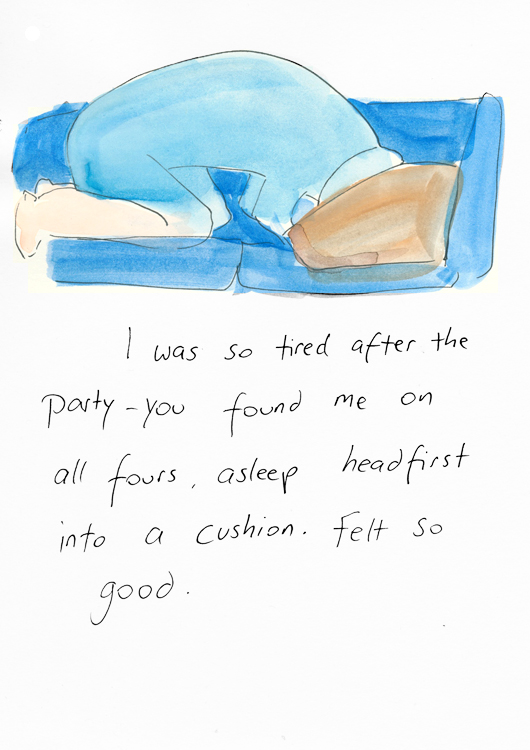 I was so tired after the
party - you found me on
all fours, asleep headfirst
into a cushion. Felt so
good.